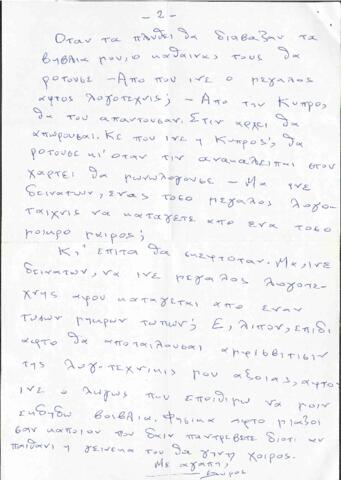 - 2 -
Οταν τα πλυθει θα διαβαζαν τα
βιβλια μου, ο καθαινας τους θα
ροτουσε - Απο που ινε ο μεγαλος
αφτος λογοτεχνις; - Απο την Κυπρος,
θα του απαντουσαν. Στιν αρχει θα
απωρουσαι. Κε που ινε η Κυπρος; θα
ροτουσε κι' οταν τιν ανακαλειπται στον
χαρτει θα μωνωλογουσε - Μα ινε
δεινατων, ενας τοσο μεγαλος λογο-
ταιχνις να καταγετε απο ενα τοσο
μοικρο μαιρος;
Κι' επιτα θα σκεφτοταν. Μα, ινε
δεινατων, να ινε μεγαλος λογοτε-
χνης αφου καταγεται απο εναν
τωσων μηκρων τωπων; Ε, λιπον, επιδι
αφτο θα αποταιλουσαι αμφισβιτισιν
της λογοτεχνικις μου αξοιας, αφτο
ινε ο λωγως που επειθιμω να μοιν
εκδηδω βοιβλια. Φησικα αφτο μιαζοι
σαν καποιον που δαιν παντρεβετε διοτι αν
παιθανι η γεινεκα του θα γηνη χοιρος.
Με αγαπη,